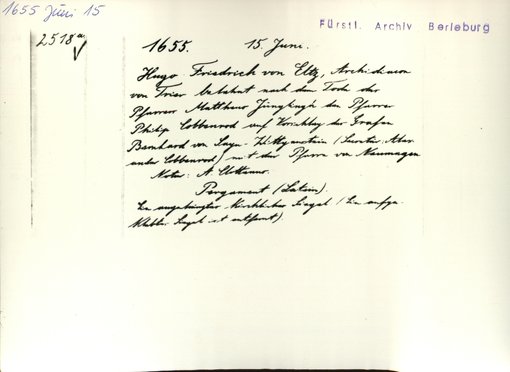 1655 Juni 15
Fürstl. Archiv Berleburg
2518a
V
1655. 15. Juni.
Hugo Friedrich von Eltz, Archidiacon
von Trier belehnt nach dem Tode des
Pfarrers Matthäus den Pfarrer
Philip Cobbenrod auf Vorschlag des Grafen
Bernhard von Sayn-Wittgenstein
unter Cobbenrod) mit der Pfarre von Neumagen
Notar: A.
Pergament (Latein).
Ein angehängter kirchlicher Siegel (Ein aufge-
klebter Siegel ist entfernt)